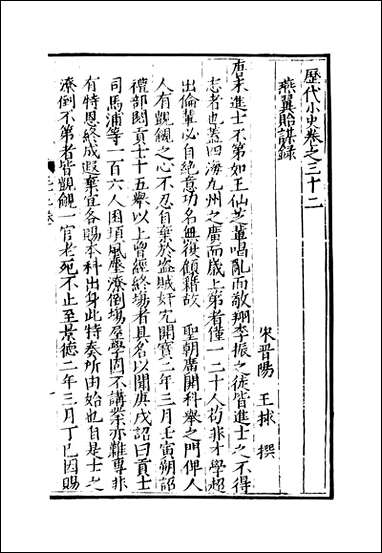 歷代小史卷之三十二
燕翼貽謀錄
宋晋陽 王捄 撰
唐末進士不第如王仙芝軰唱亂而敬翔李振之徒皆進士之不得
志者也蓋四海九州之廣而歲上第者僅一二十人苟非才學超
出倫軰必自絶意功名無復顧藉故 聖朝廣開科舉之門俾人
人有覬覦之心不忍自棄於盜賊奸宄開寶二年三月壬寅朔詔
禮部閱貢士十五舉以上曾經終場者具名以聞庚戌詔曰貢士
司馬浦等一百六人困頓風塵潦倒場屋學固不講業亦難專非
有特恩終成遐棄宜各賜本科出身此特奏所由始也自是士之
潦倒不第者皆覬覦一官老死不止至景德二年三月丁巳因賜